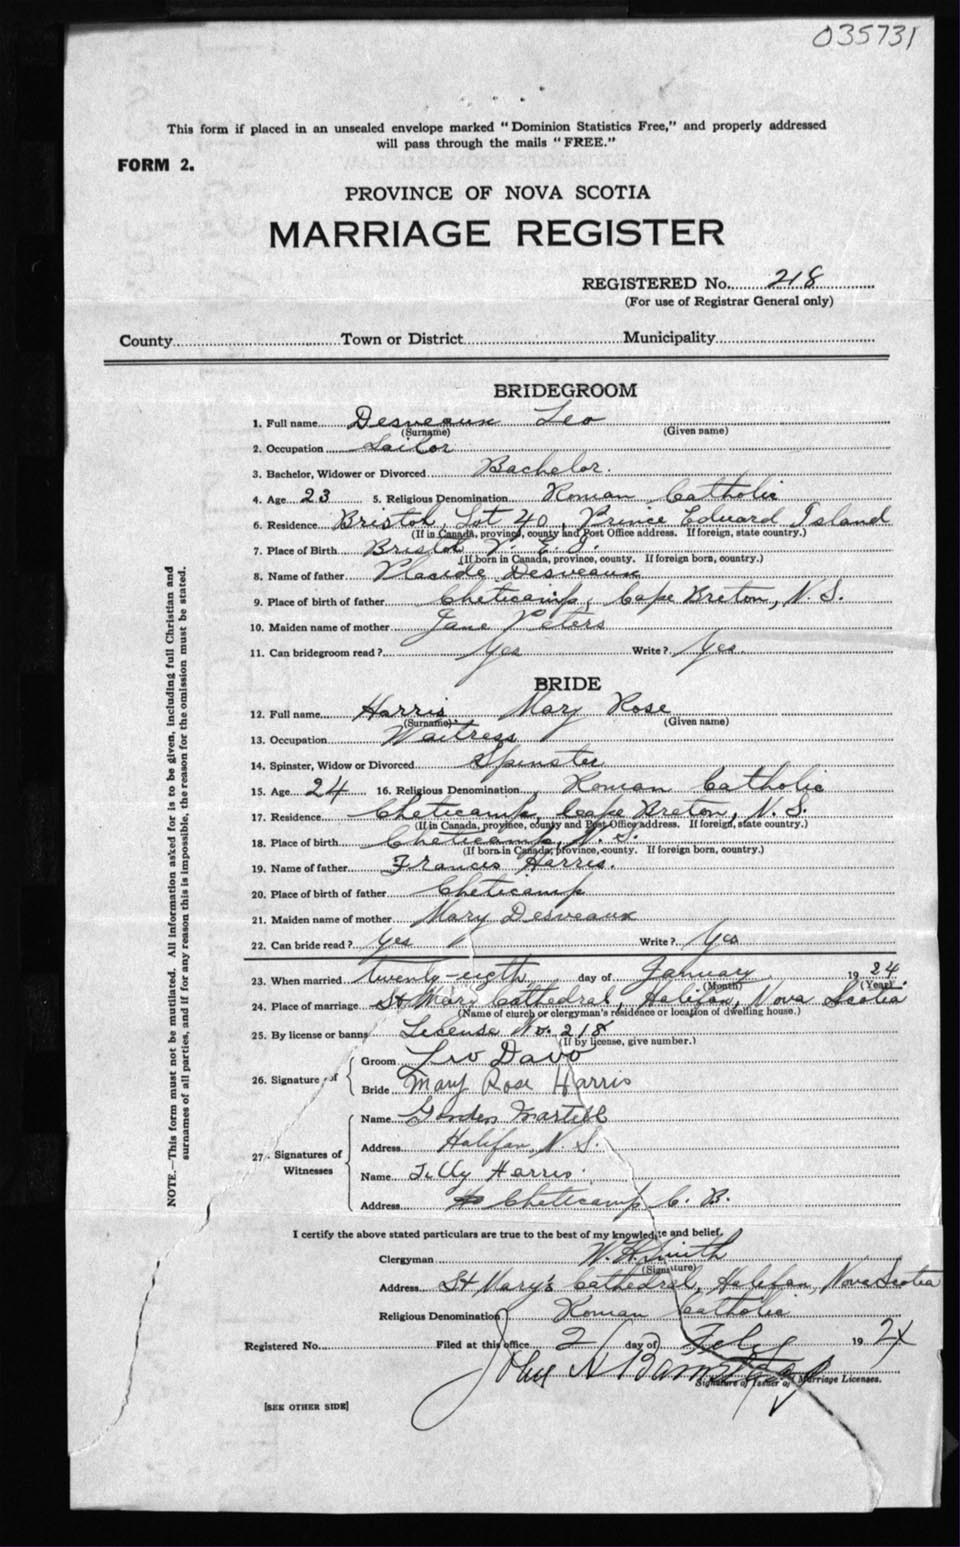 035731
This form if placed in an unsealed envelope marked "Dominion Statistics Free," and properly addressed
will pass through the mails "FREE."
FORM 2.
PROVINCE OF NOVA SCOTIA
MARRIAGE REGISTER
REGISTERED No. 218
(For use of Registrar General only)
County Town or District Municipality
BRIDEGROOM
1. Full name Desveaux Leo
(Surname) (Given name)
2. Occupation Sailor
3. Bachelor, Widower or Divorced Bachelor.
4. Age 23 5. Religious Denomination Roman Catholic
6. Residence Bristol, Lot 40, Prince Edward Island
(If in Canada, province, county and Post Office address. If foreign, state country.)
7. Place of Birth Bristol P. E. I.
(If born in Canada, province, county. If foreign born, country.)
8. Name of father Placide Desveaux
9. Place of birth of father Cheticamp, Cape Breton, N. S.
10. Maiden name of mother Jane Peters
11. Can bridegroom read? Yes Write? Yes
BRIDE
12. Full name Harris Mary Rose
(Surname) (Given name)
13. Occupation Waitress
14. Spinster, Widow or Divorced Spinster
15. Age 24 16. Religious Denomination Roman Catholic
17. Residence Cheticamp, Cape Breton, N. S.
(If in Canada, province, county and Post Office address. If foreign, state country.)
18. Place of birth Cheticamp, N. S.
(If born in Canada, province, county. If foreign born, country.)
19. Name of father Francis Harris.
20. Place of birth of father Cheticamp
21. Maiden name of mother Mary Desveaux
22. Can bride read? Yes Write? Yes
23. When married twenty-eigth day of January 1924
(Month) (Year)
24. Place of marriage St Mary Cathedral, Halifax, Nova Scotia
(Name of church or clergyman's residence or location of dwelling house.)
25. By license or banns License No. 218
(If by license, give number.)
26. Signature of
Groom Leo Davo
Bride Mary Rose Harris
27. Signatures of Witnesses
Name Gordon Martell
Address Halifax, N. S.
Name Tilly Harris
Address Cheticamp C. B.
I certify the above stated particulars are true to the best of my knowledge and belief.
Clergyman W. H. Smith
(Signature)
Address St Mary's Cathedral, Halifax, Nova Scotia
Religious Denomination Roman Catholic
Registered No. Filed at this office 2 day of Feby 1924
John N Barnstead
Signature of Issuer of Marriage Licenses.
[SEE OTHER SIDE]
NOTE.—This form must not be mutilated. All information asked for is to be given, including full Christian and
surnames of all parties, and if for any reason this is impossible, the reason for the omission must be stated.